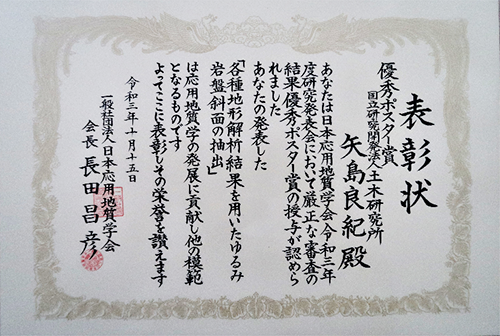 表彰状
優秀ポスター賞
国立研究開発法人土木研究所
矢島良紀殿
あなたは日本応用地質学会令和三年
度研究発表会において厳正な審査の
結果優秀ポスター賞の授与が認めら
れました
あなたの発表した
「各種地形解析結果を用いたゆるみ
岩盤斜面の抽出」
は応用地質学の発展に貢献し他の模範
となるものです
よってここに表彰しその栄誉を讃えます
令和三年十月十五日
一般社団法人日本応用地質学会
会長 長田昌彦